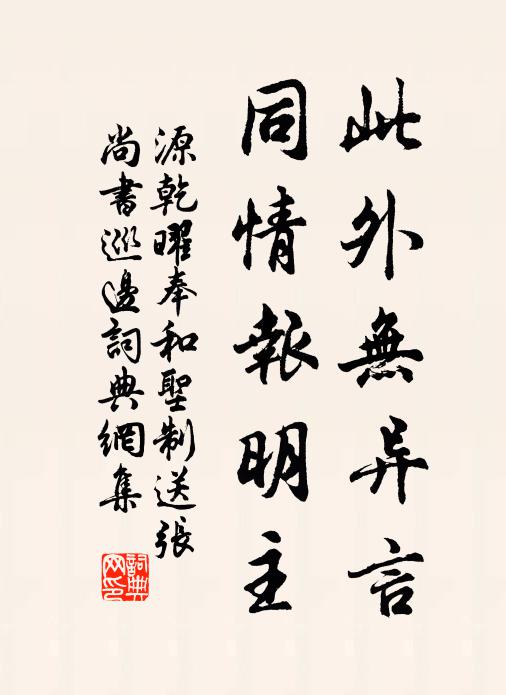 此外無异言
同情報明主
源乾曜奉和聖制送張
尚書巡邊詞典網集
詞典
网印